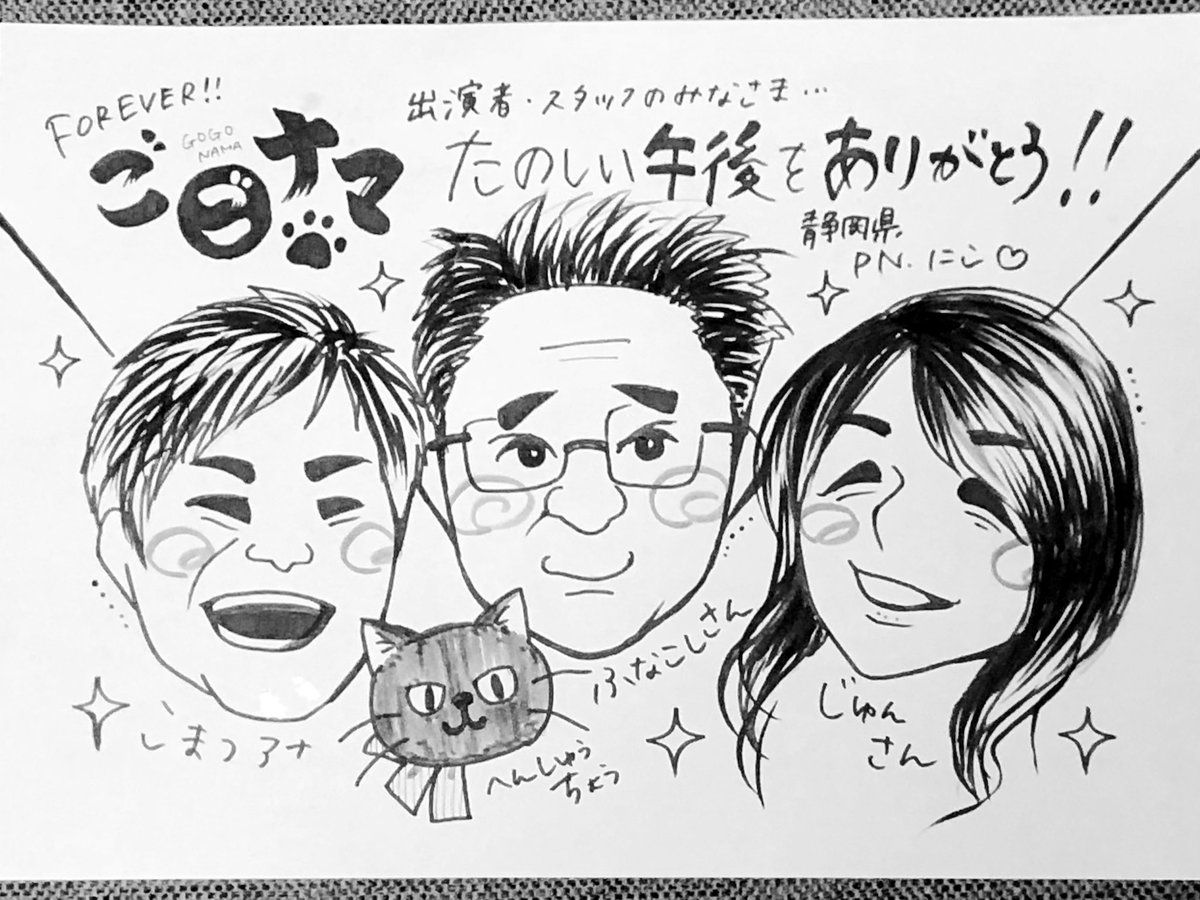 FOREVER!!
ごごナマ
GOGO
NAMA
出演者・スタッフのみなさま…
たのしい午後をありがとう!!
静岡県
PN.にこ♡
しまつアナ
へんしゅう
ちょう
ふなこしさん
じゅん
さん